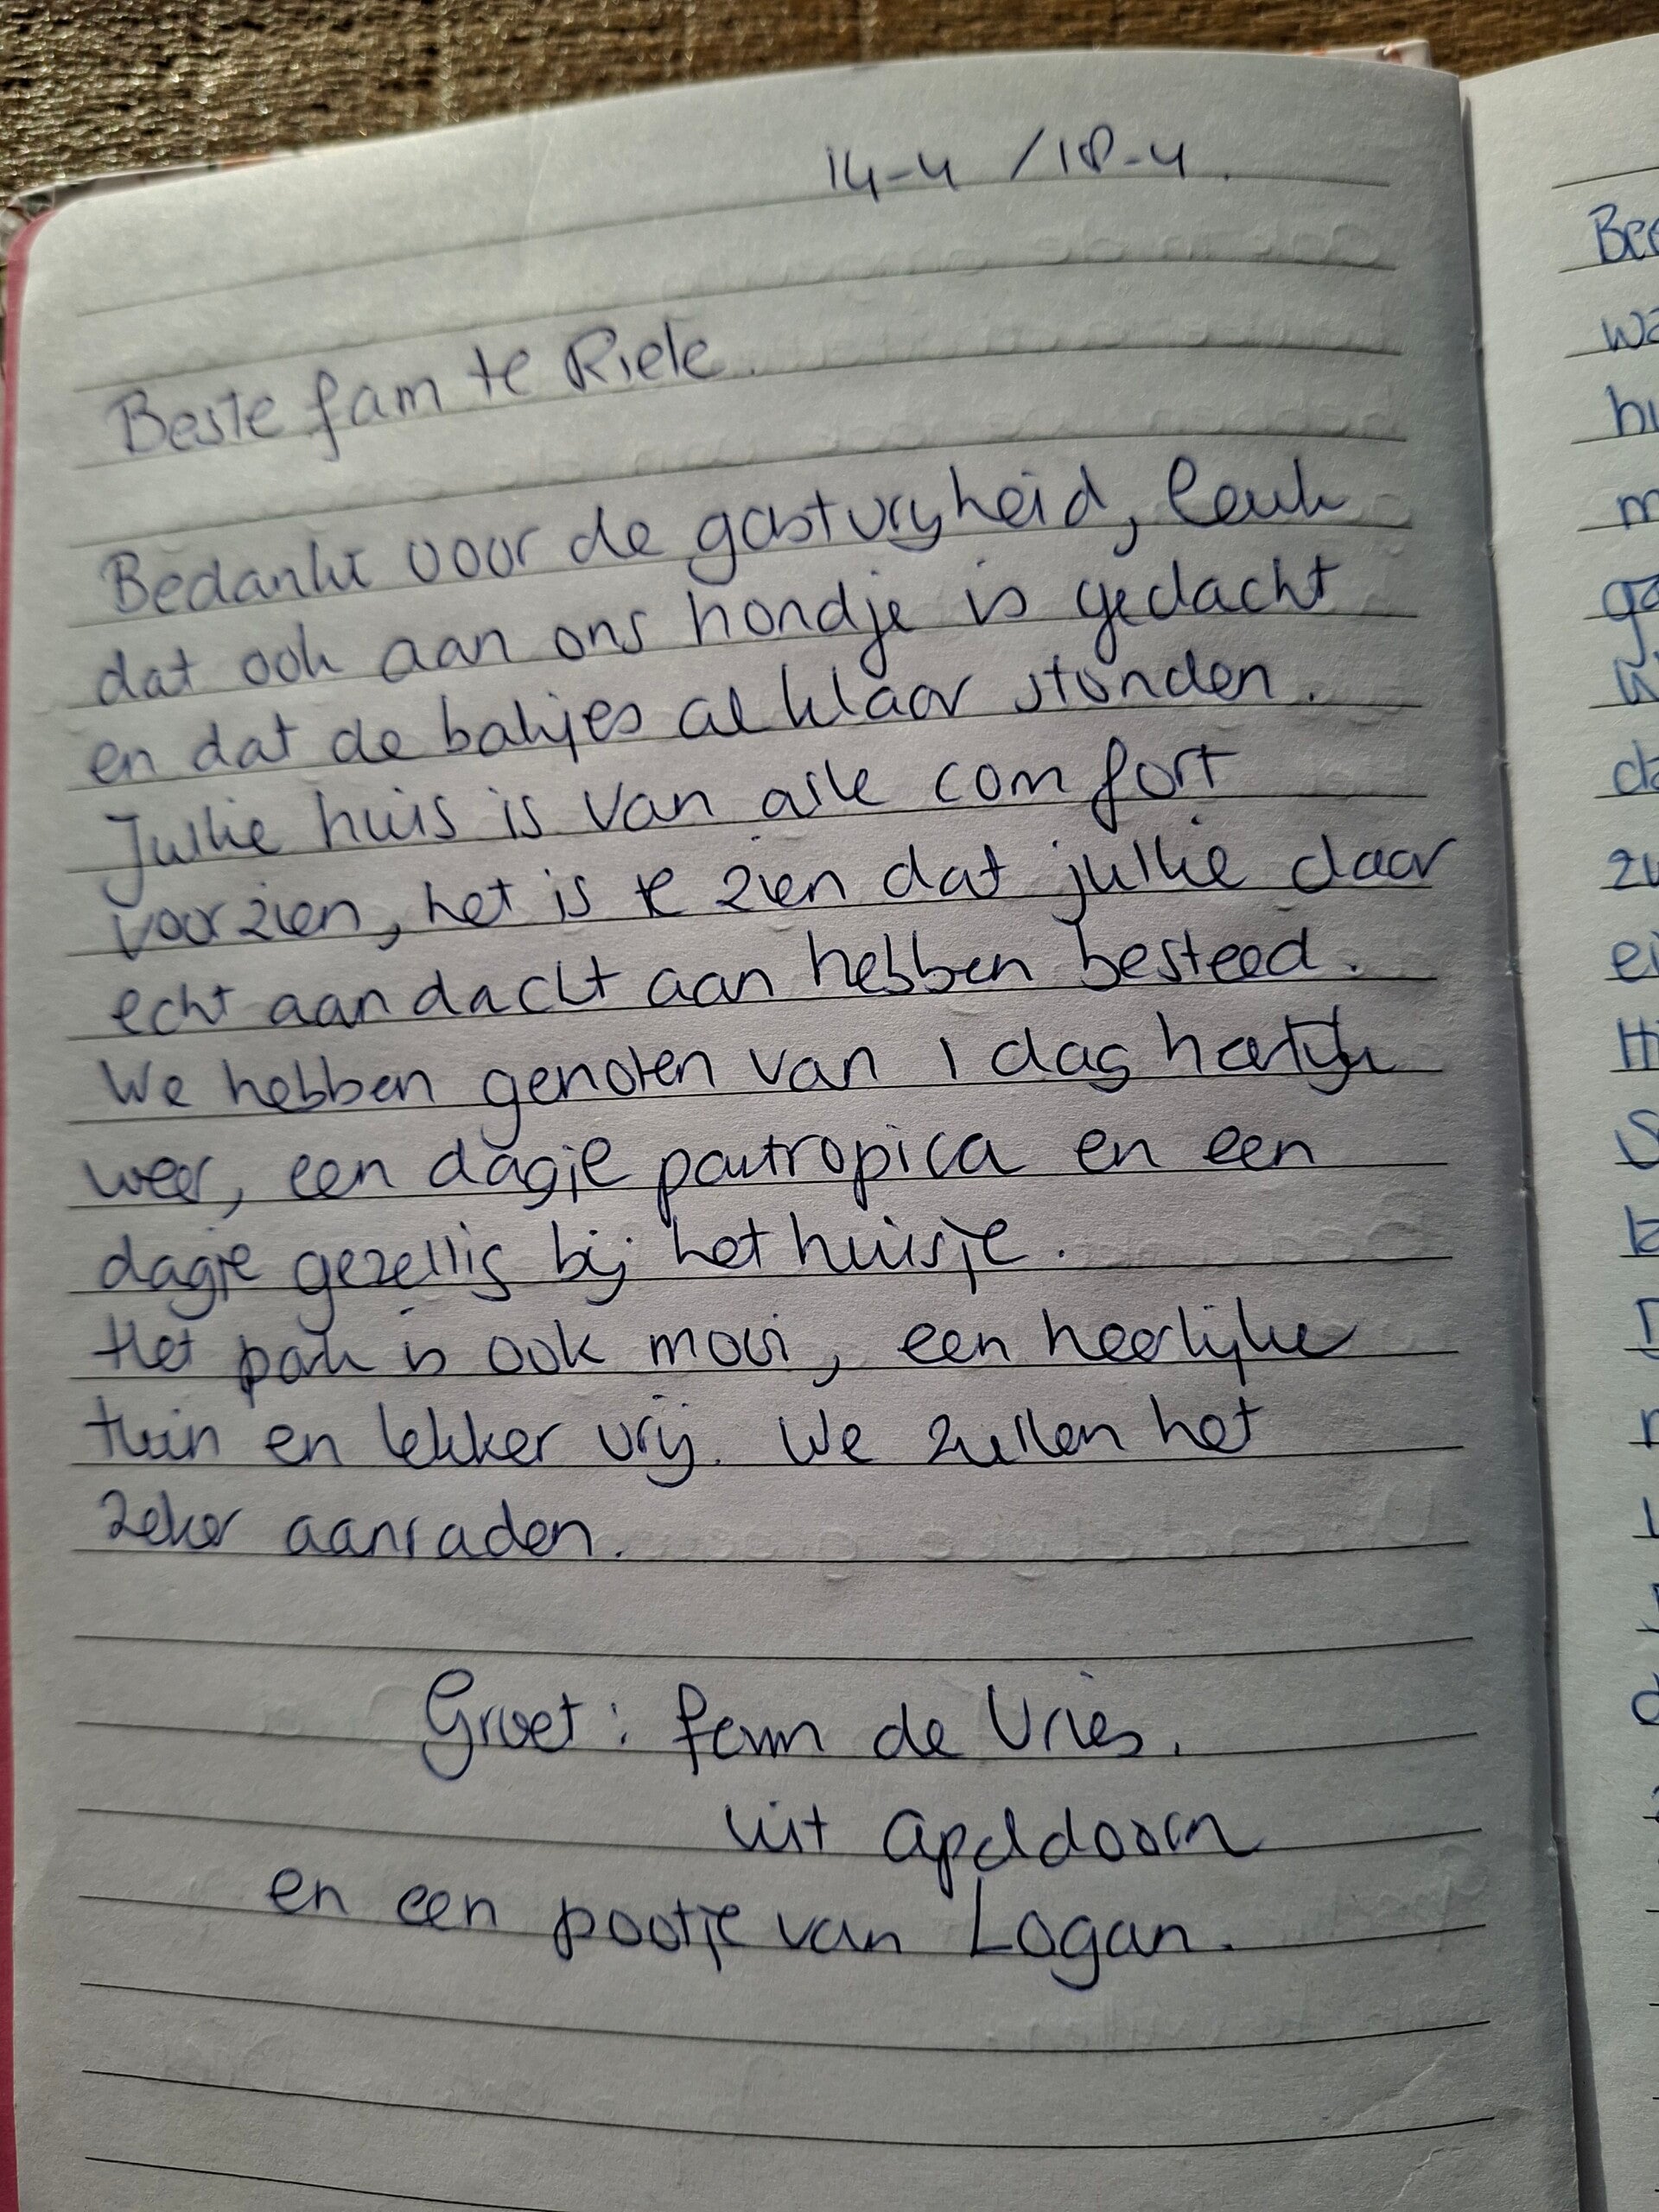 14-4 / 18-4.
Beste fam te Riele.
Bedankt voor de gastvryheid, leuk
dat ook aan ons hondje is gedacht
en dat de bakjes al klaar stonden.
Jullie huis is van alle comfort
voorzien, het is te zien dat jullie daar
echt aandacht aan hebben besteed.
We hebben genoten van 1 dag heerlijk
weer, een dagje pantropica en een
dagje gezellig bij het huisje.
Het park is ook mooi, een heerlijke
tuin en lekker vrij. We zullen het
zeker aanraden.
Groet: fam de Vries.
uit Apeldoorn
en een pootje van Logan.